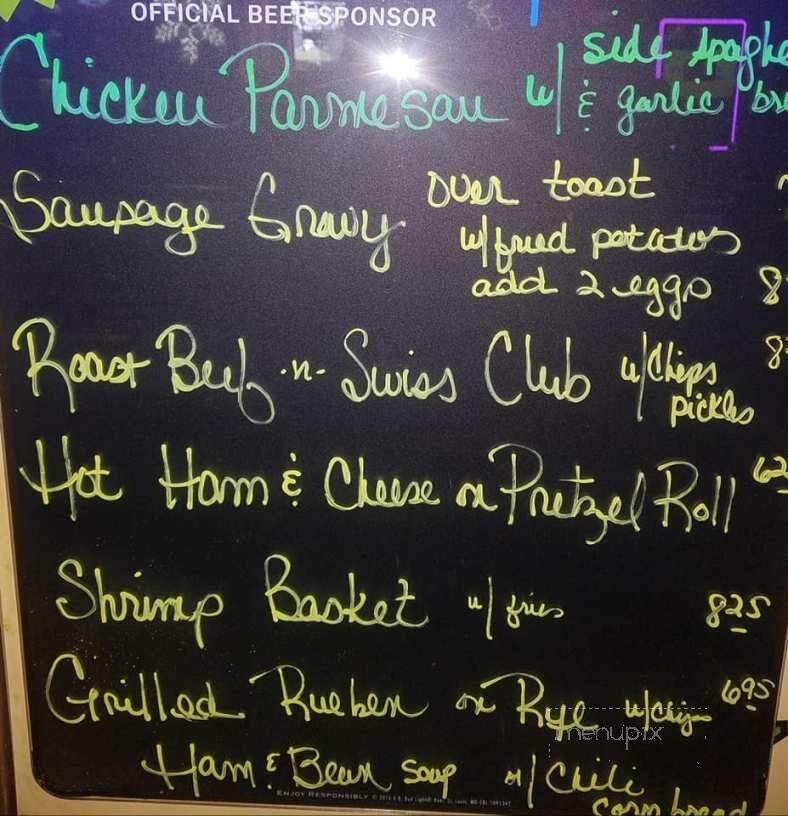 OFFICIAL BEER SPONSOR
Chicken Parmesan w/ side
& garlic
Sausage Gravy over toast
w/ fried potatoes
add 2 eggs 8
Roast Beef -n- Swiss Club w/ Chips 8
pickles
Hot Ham & Cheese on Pretzel Roll 62
Shrimp Basket w/ fries 825
Grilled Rueben on Rye w/ 695
menupix
Ham & Bean soup or/ Chili
corn bread
ENJOY RESPONSIBLY